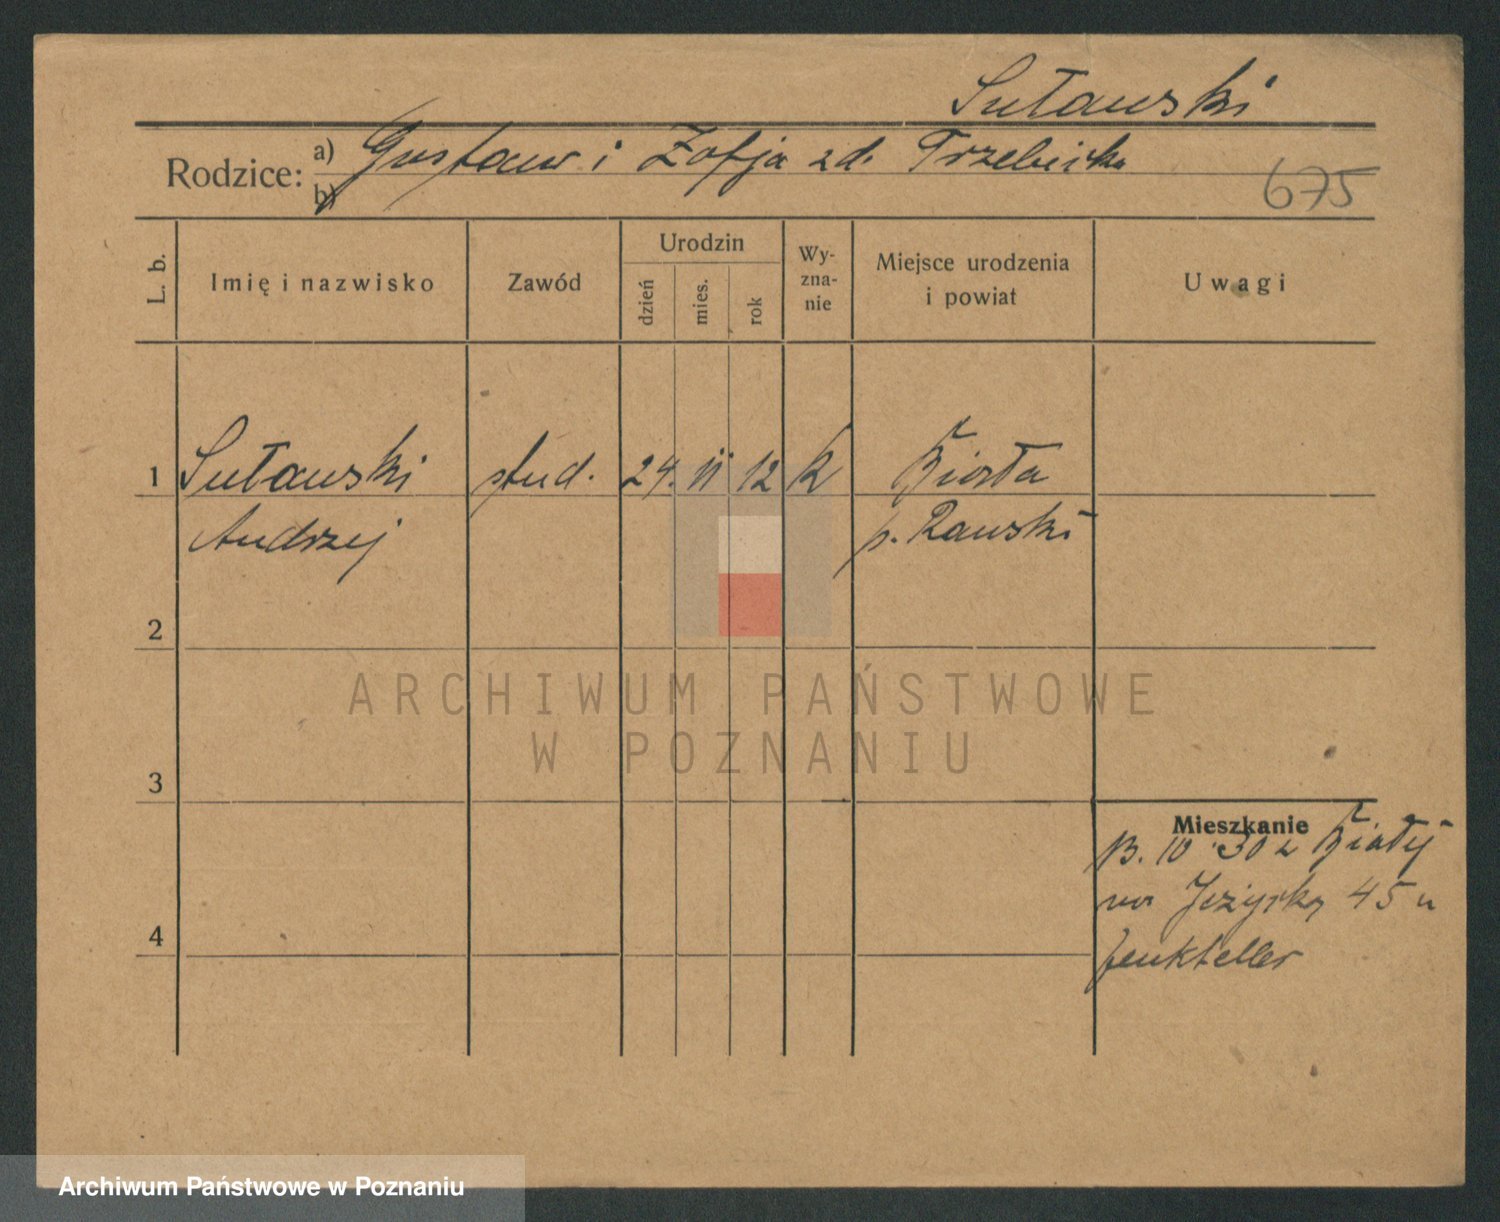 Sułowski
Rodzice: a) Gustaw i Zofja zd. Trzebicka
b)
675
L. b.
Imię i nazwisko
Zawód
Urodzin
dzień
mies.
rok
Wy-
zna-
nie
Miejsce urodzenia
i powiat
Uwagi
1 Sułowski stud. 24. 11 12 k Biała
Andrzej p. Rawski
2
ARCHIWUM PAŃSTWOWE
W POZNANIU
3
Mieszkanie
13. 10 30 z Białej
na Jeżycką 45 u
4
Archiwum Państwowe w Poznaniu